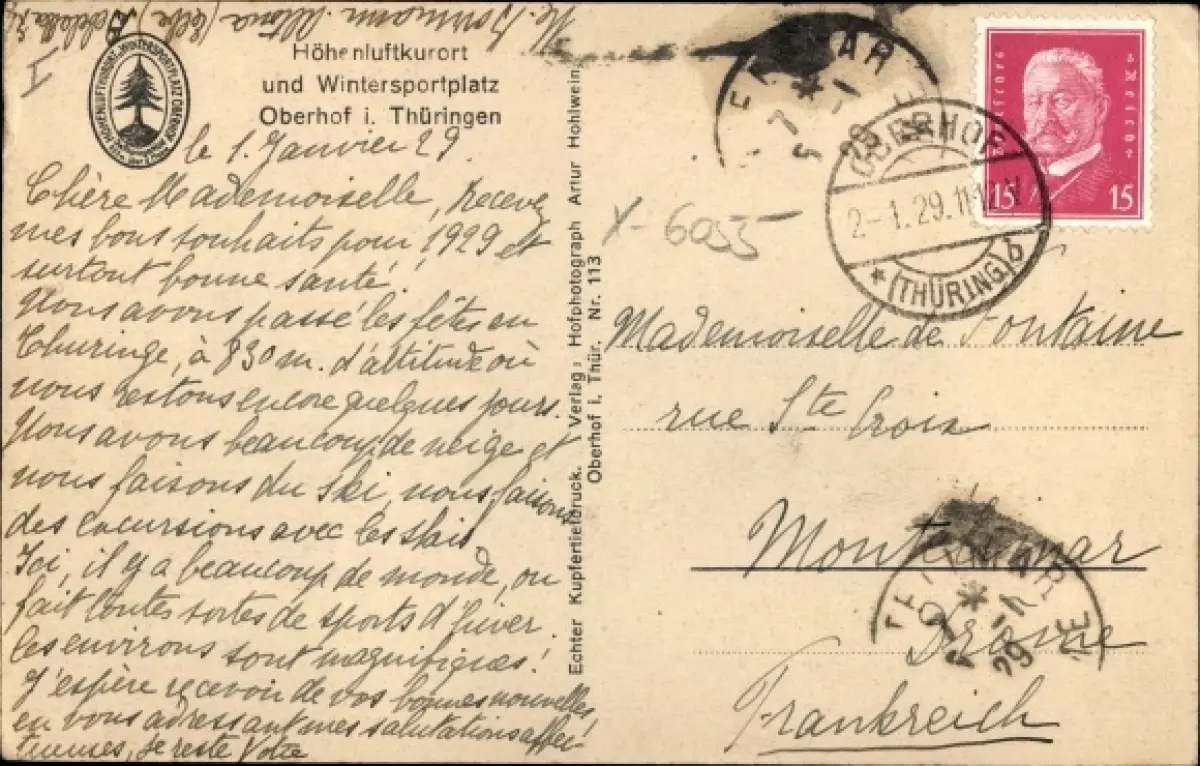 Höhenluftkurort
und Wintersportplatz
Oberhof i. Thüringen
le 1. Janvier 29.
Chère Mademoiselle, Recevez
mes bons souhaits pour 1929 et
surtout bonne santé!
Nous avons passé les fêtes en
Thuringe, à 830 m. d'altitude où
nous restons encore quelques jours.
Nous avons beaucoup de neige et
nous faisons du Ski, nous faisons
des excursions avec les
Ici, il y a beaucoup de monde, on
fait toutes sortes de sports d'hiver.
Les environs sont magnifiques!
J'espère recevoir de vos bonnes nouvelles
en vous adressant mes salutations affec-
tueuses, je reste Votre
Echter Kupfertiefdruck. Verlag: Hofphotograph Artur Hohlwein
Oberhof i. Thür. Nr. 113
X-6035
OBERHOF
2-1.29.11-12 V
* (THÜRING) b
15 15
Mademoiselle de Fontaine
rue Ste Croix
Montélimar
Drôme
Frankreich